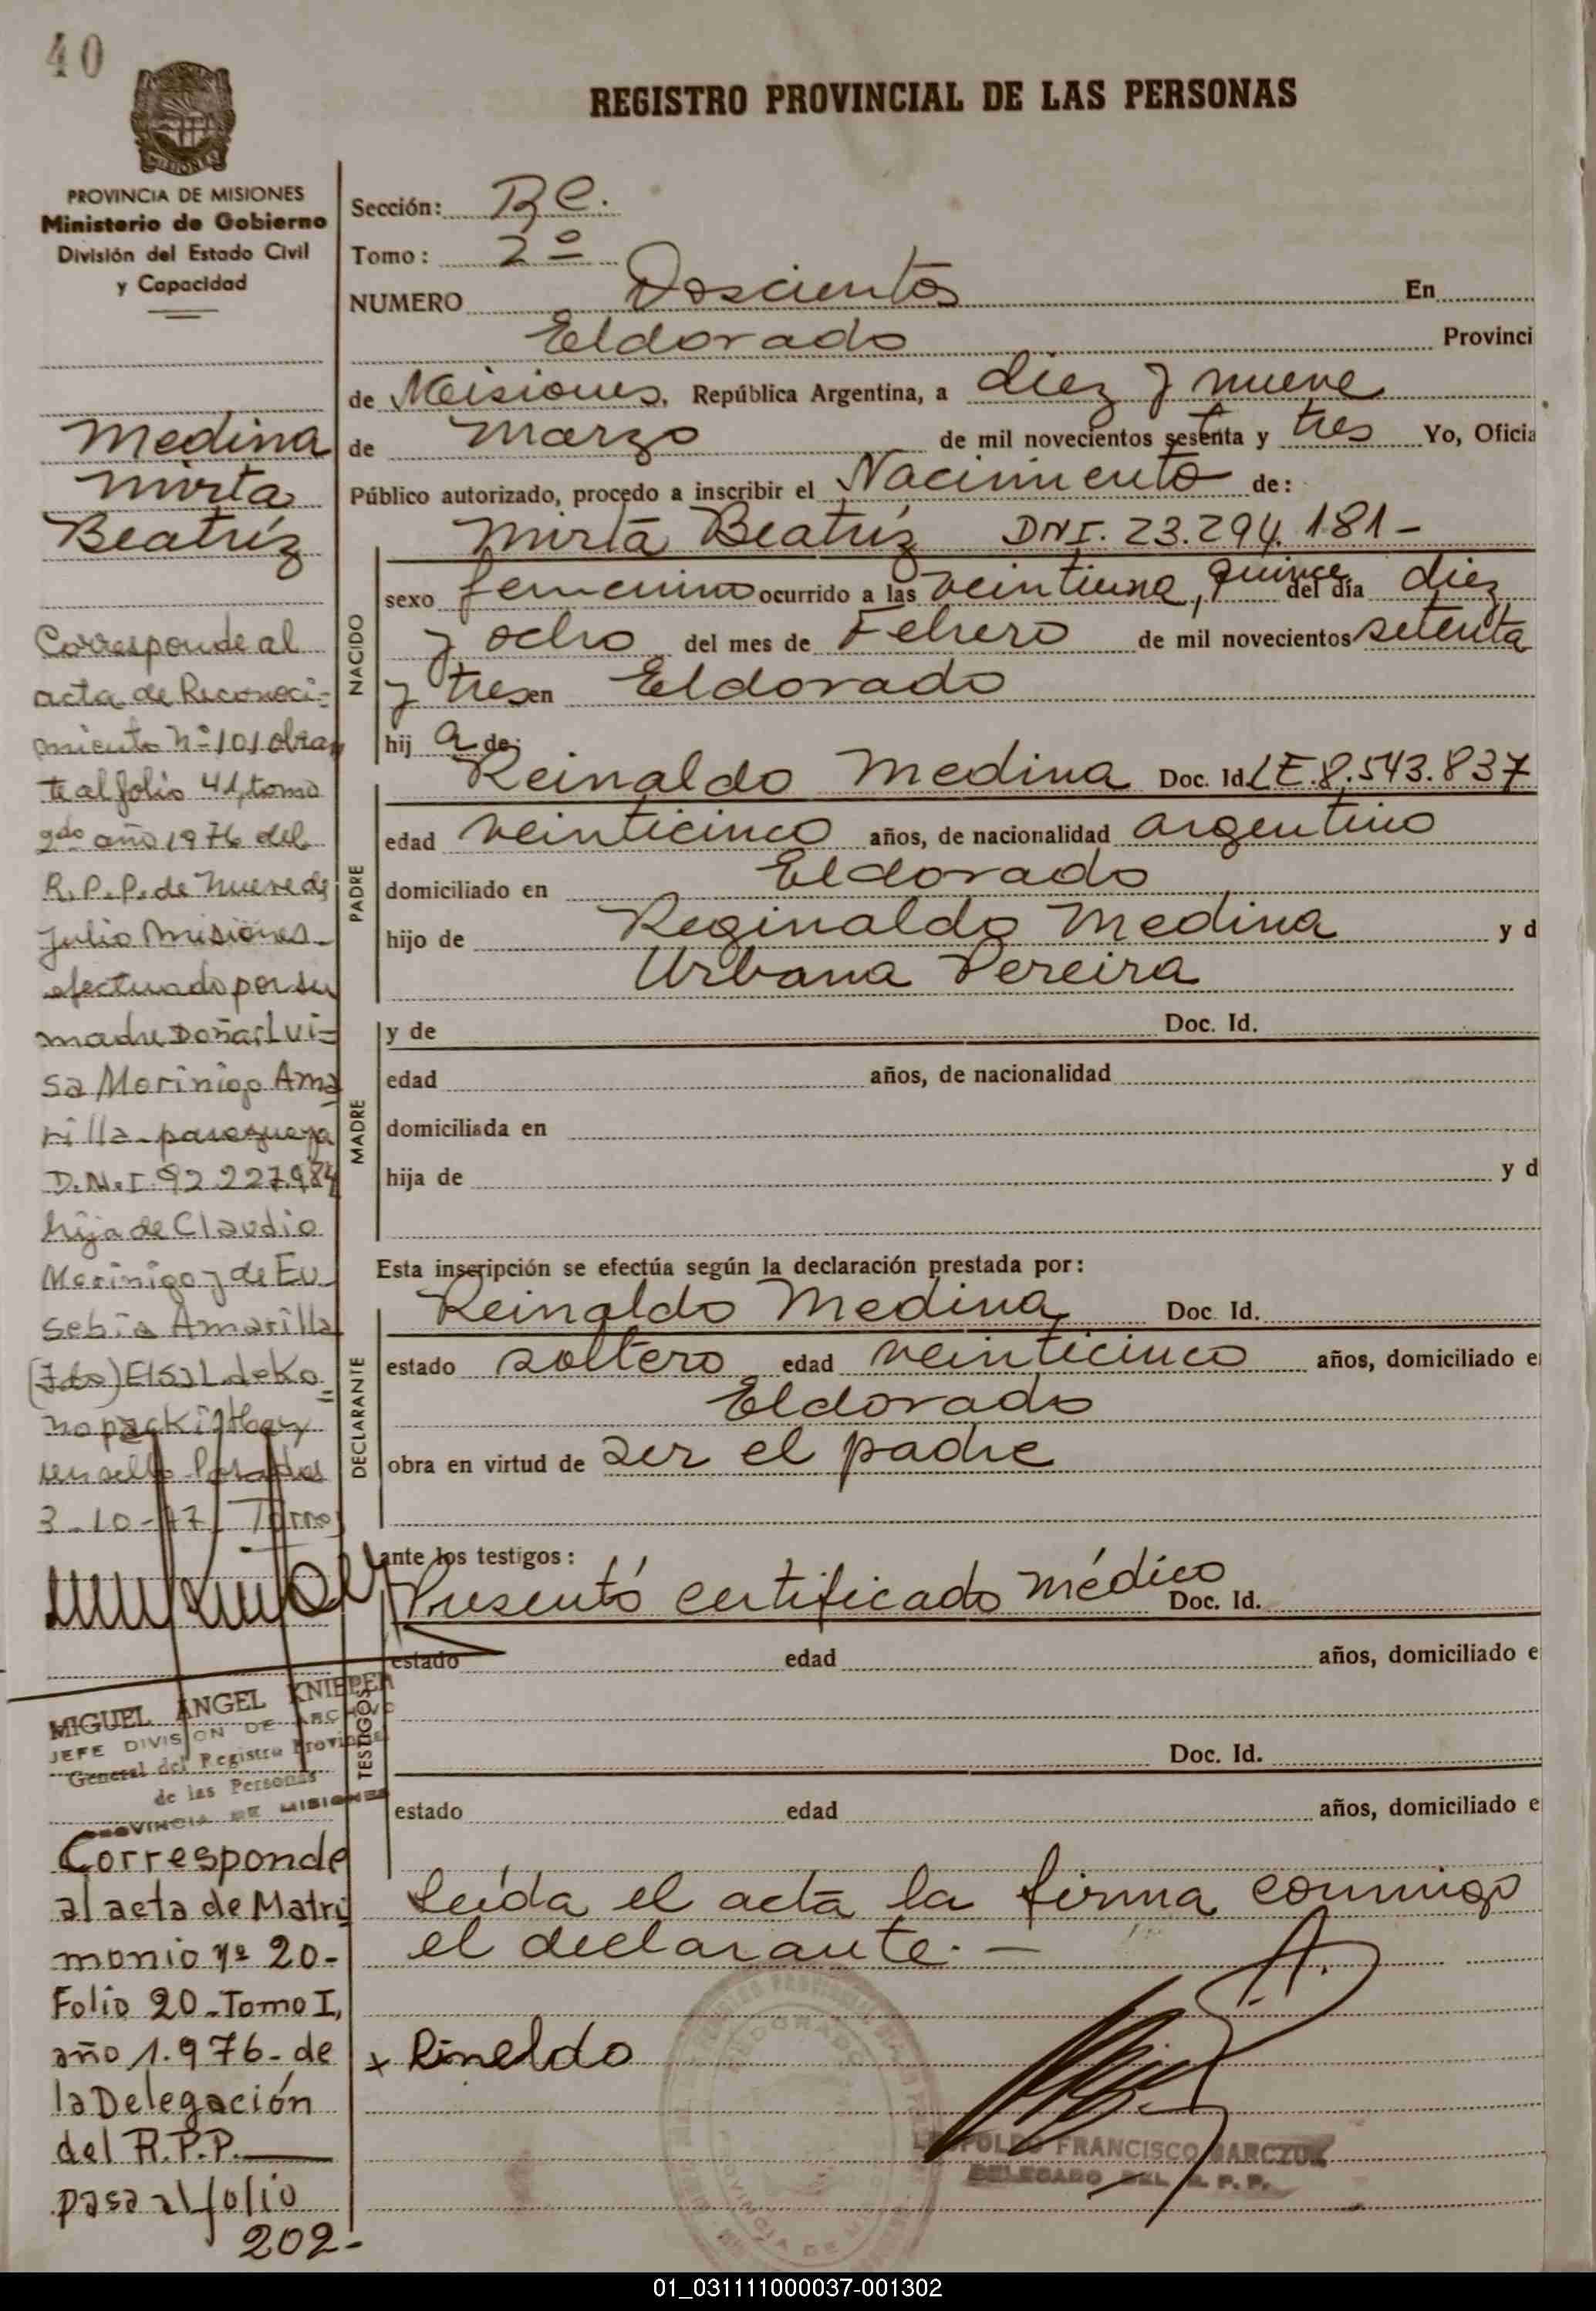 40
REGISTRO PROVINCIAL DE LAS PERSONAS
MISIONES
PROVINCIA DE MISIONES
Ministerio de Gobierno
División del Estado Civil
y Capacidad
Medina
Mirta
Beatríz
Corresponde al
acta de Reconoci-
miento Nº 101 obran
te al folio 41, tomo
2do año 1976 del
R.P.P. de Nueve de
Julio Misiones-
efectuado por su
madre Doña: Lui=
sa Morinigo Ama
rilla - paraguaya
D.N.I. 92.227.984
hija de Claudio
Morinigo y de Eu
sebia Amarilla
(Fdo) Elsa L. de Ko
=
nopacki
un sello Posadas
3-10-77
MIGUEL ANGEL KNIEPER
JEFE DIVISION DE ARCHIVO
General del Registro Provincial
de las Personas
PROVINCIA DE MISIONES
Corresponde
al acta de Matri
monio nº 20-
Folio 20-Tomo I,
año 1.976- de
la Delegación
del R.P.P.
pasa al folio
202-
Sección: RC.
Tomo: 2º
NUMERO Doscientos En
Eldorado Provinci
de Misiones, República Argentina, a diez y nueve
de marzo de mil novecientos sesenta y tres Yo, Oficia
Público autorizado, procedo a inscribir el Nacimiento de:
Mirta Beatríz DNI. 23.294.181-
NACIDO
sexo femenino ocurrido a las veintiuna, quince del día diez
y ocho del mes de Febrero de mil novecientos setenta
y tres en Eldorado
hij a de:
Reinaldo Medina Doc. Id. LE.8.543.837
PADRE
edad veinticinco años, de nacionalidad argentino
domiciliado en Eldorado
hijo de Reginaldo Medina y d
Urbana Pereira
y de Doc. Id.
MADRE
edad años, de nacionalidad
domiciliada en
hija de y d
Esta inscripción se efectúa según la declaración prestada por:
Reinaldo Medina Doc. Id.
DECLARANTE
estado soltero edad veinticinco años, domiciliado e
Eldorado
obra en virtud de ser el padre
ante los testigos:
Presentó certificado médico Doc. Id.
TESTIGOS
estado edad años, domiciliado e
Doc. Id.
estado edad años, domiciliado e
Leída el acta la firma conmigo
el declarante.-
x Rineldo
ELDORADO
PROVINCIA DE
LEOPOLDO FRANCISCO BARCZUK
DELEGADO DEL R. P. P.
01_031111000037-001302